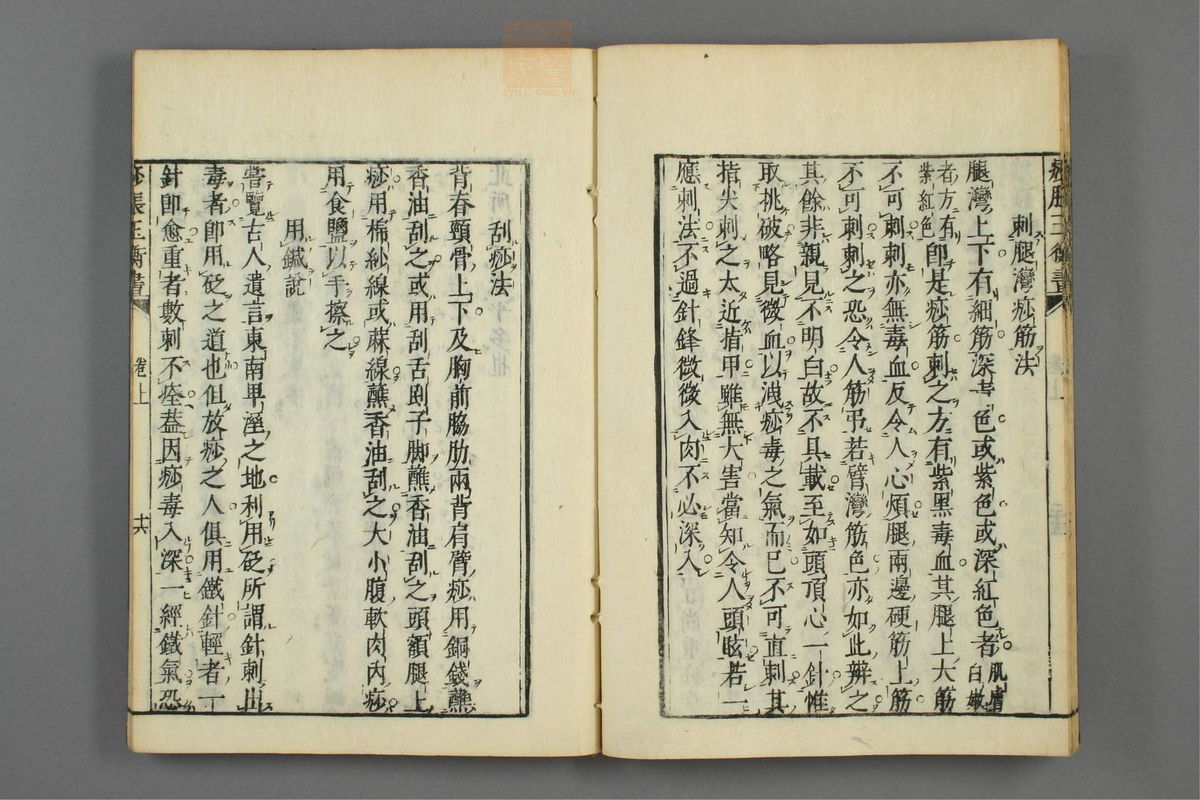 痧脹玉衡書
刺腿灣痧筋法
腿灣上下有細筋深青色或紫色或深紅色者肌膚白嫩
者方有紫紅色即是痧筋刺之方有紫黑毒血其腿上大筋
不可刺刺亦無毒血反令人心煩腿兩邊硬筋上筋
不可刺刺之恐令人筋弔若臂灣筋色亦如此辨之
其餘非親見不明白故不具載至如頭頂心一針惟
取挑破略見微血以洩痧毒之氣而已不可直刺其
指尖刺之太近指甲雖無大害當知令人頭眩若一
應刺法不過針鋒微微入肉不必深入
刮痧法
背脊頸骨上下及胸前脇肋兩背肩臂痧用銅錢蘸
香油刮之或用刮舌刡子脚蘸香油刮之頭額腿上
痧用棉紗線或蔴線蘸香油刮之大小腹軟肉內痧
用食鹽以手擦之
用鍼說
嘗覽古人遺言東南卑溼之地利用砭所謂針刺出
毒者即用砭之道也但放痧之人俱用鐵針輕者一
針即愈重者數刺不痊蓋因痧毒入深一經鐵氣恐
痧脹玉衡書
卷上
十六